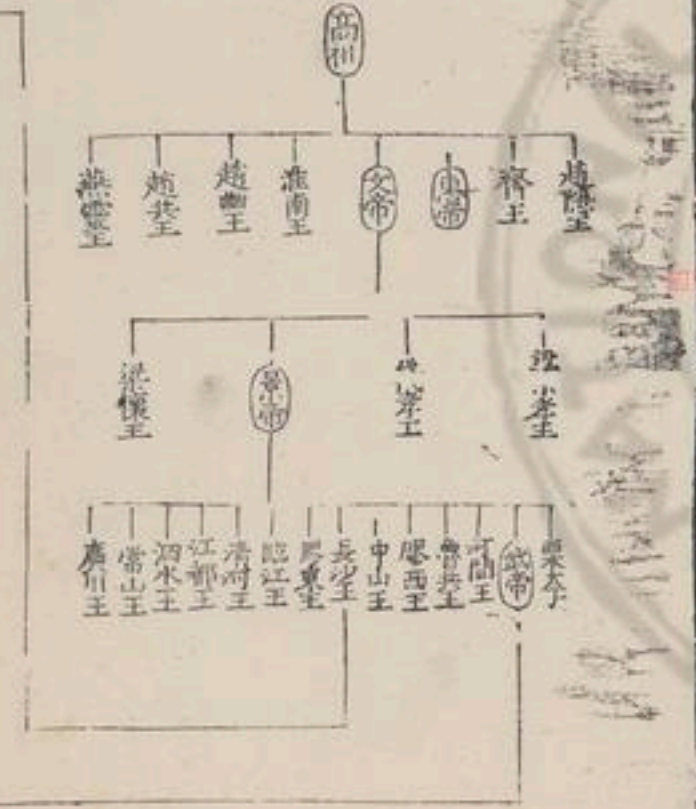 高祖
趙隱王
齊王
惠帝
文帝
淮南王
趙幽王
趙共王
燕靈王
孝王
孝王
景帝
梁懷王
栗太子
武帝
河間王
魯共王
膠西王
中山王
長沙王
膠東王
臨江王
清河王
江都王
泗水王
常山王
廣川王